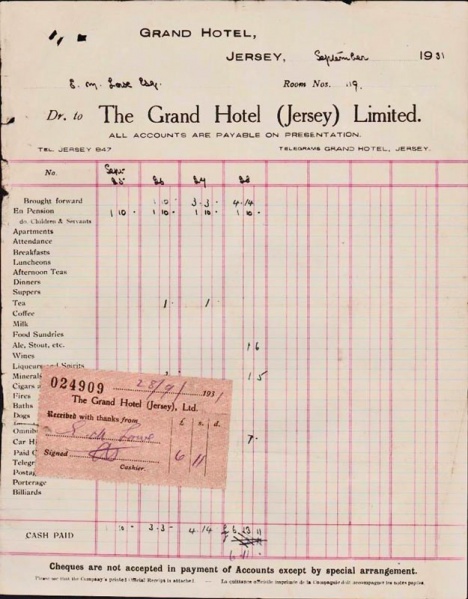 GRAND HOTEL,
JERSEY, September 1931
E. M. Lowe Esq. Room Nos. 119.
Dr. to The Grand Hotel (Jersey) Limited.
ALL ACCOUNTS ARE PAYABLE ON PRESENTATION.
TEL. JERSEY 947 TELEGRAMS GRAND HOTEL, JERSEY.
No. Sept 25 26 27 28
Brought forward 1 10 3 . 3 . 4 . 14
En Pension 1 10 . 1 10 . 1 10 . 1 10 .
do. Children & Servants
Apartments
Attendance
Breakfasts
Luncheons
Afternoon Teas
Dinners
Suppers
Tea 1 . 1 .
Coffee
Milk
Food Sundries
Ale, Stout, etc. 1 6
Wines
Liqueurs and Spirits
Minerals 1 5
Cigars
Fires
Baths
Dogs
Omnib
Car Hi 7 .
Paid O
Telegr
Postag
Porterage
Billiards
024909 28/9/ 1931
The Grand Hotel (Jersey), Ltd.
Received with thanks from £ s. d.
E. M. Lowe
Signed 6 11
Cashier.
CASH PAID 3 . 3 . 4 14
6 . 11 .
Cheques are not accepted in payment of Accounts except by special arrangement.
Please see that the Company's printed Official Receipt is attached. — La quittance officielle imprimée de la Compagnie doit accompagner les notes payées.